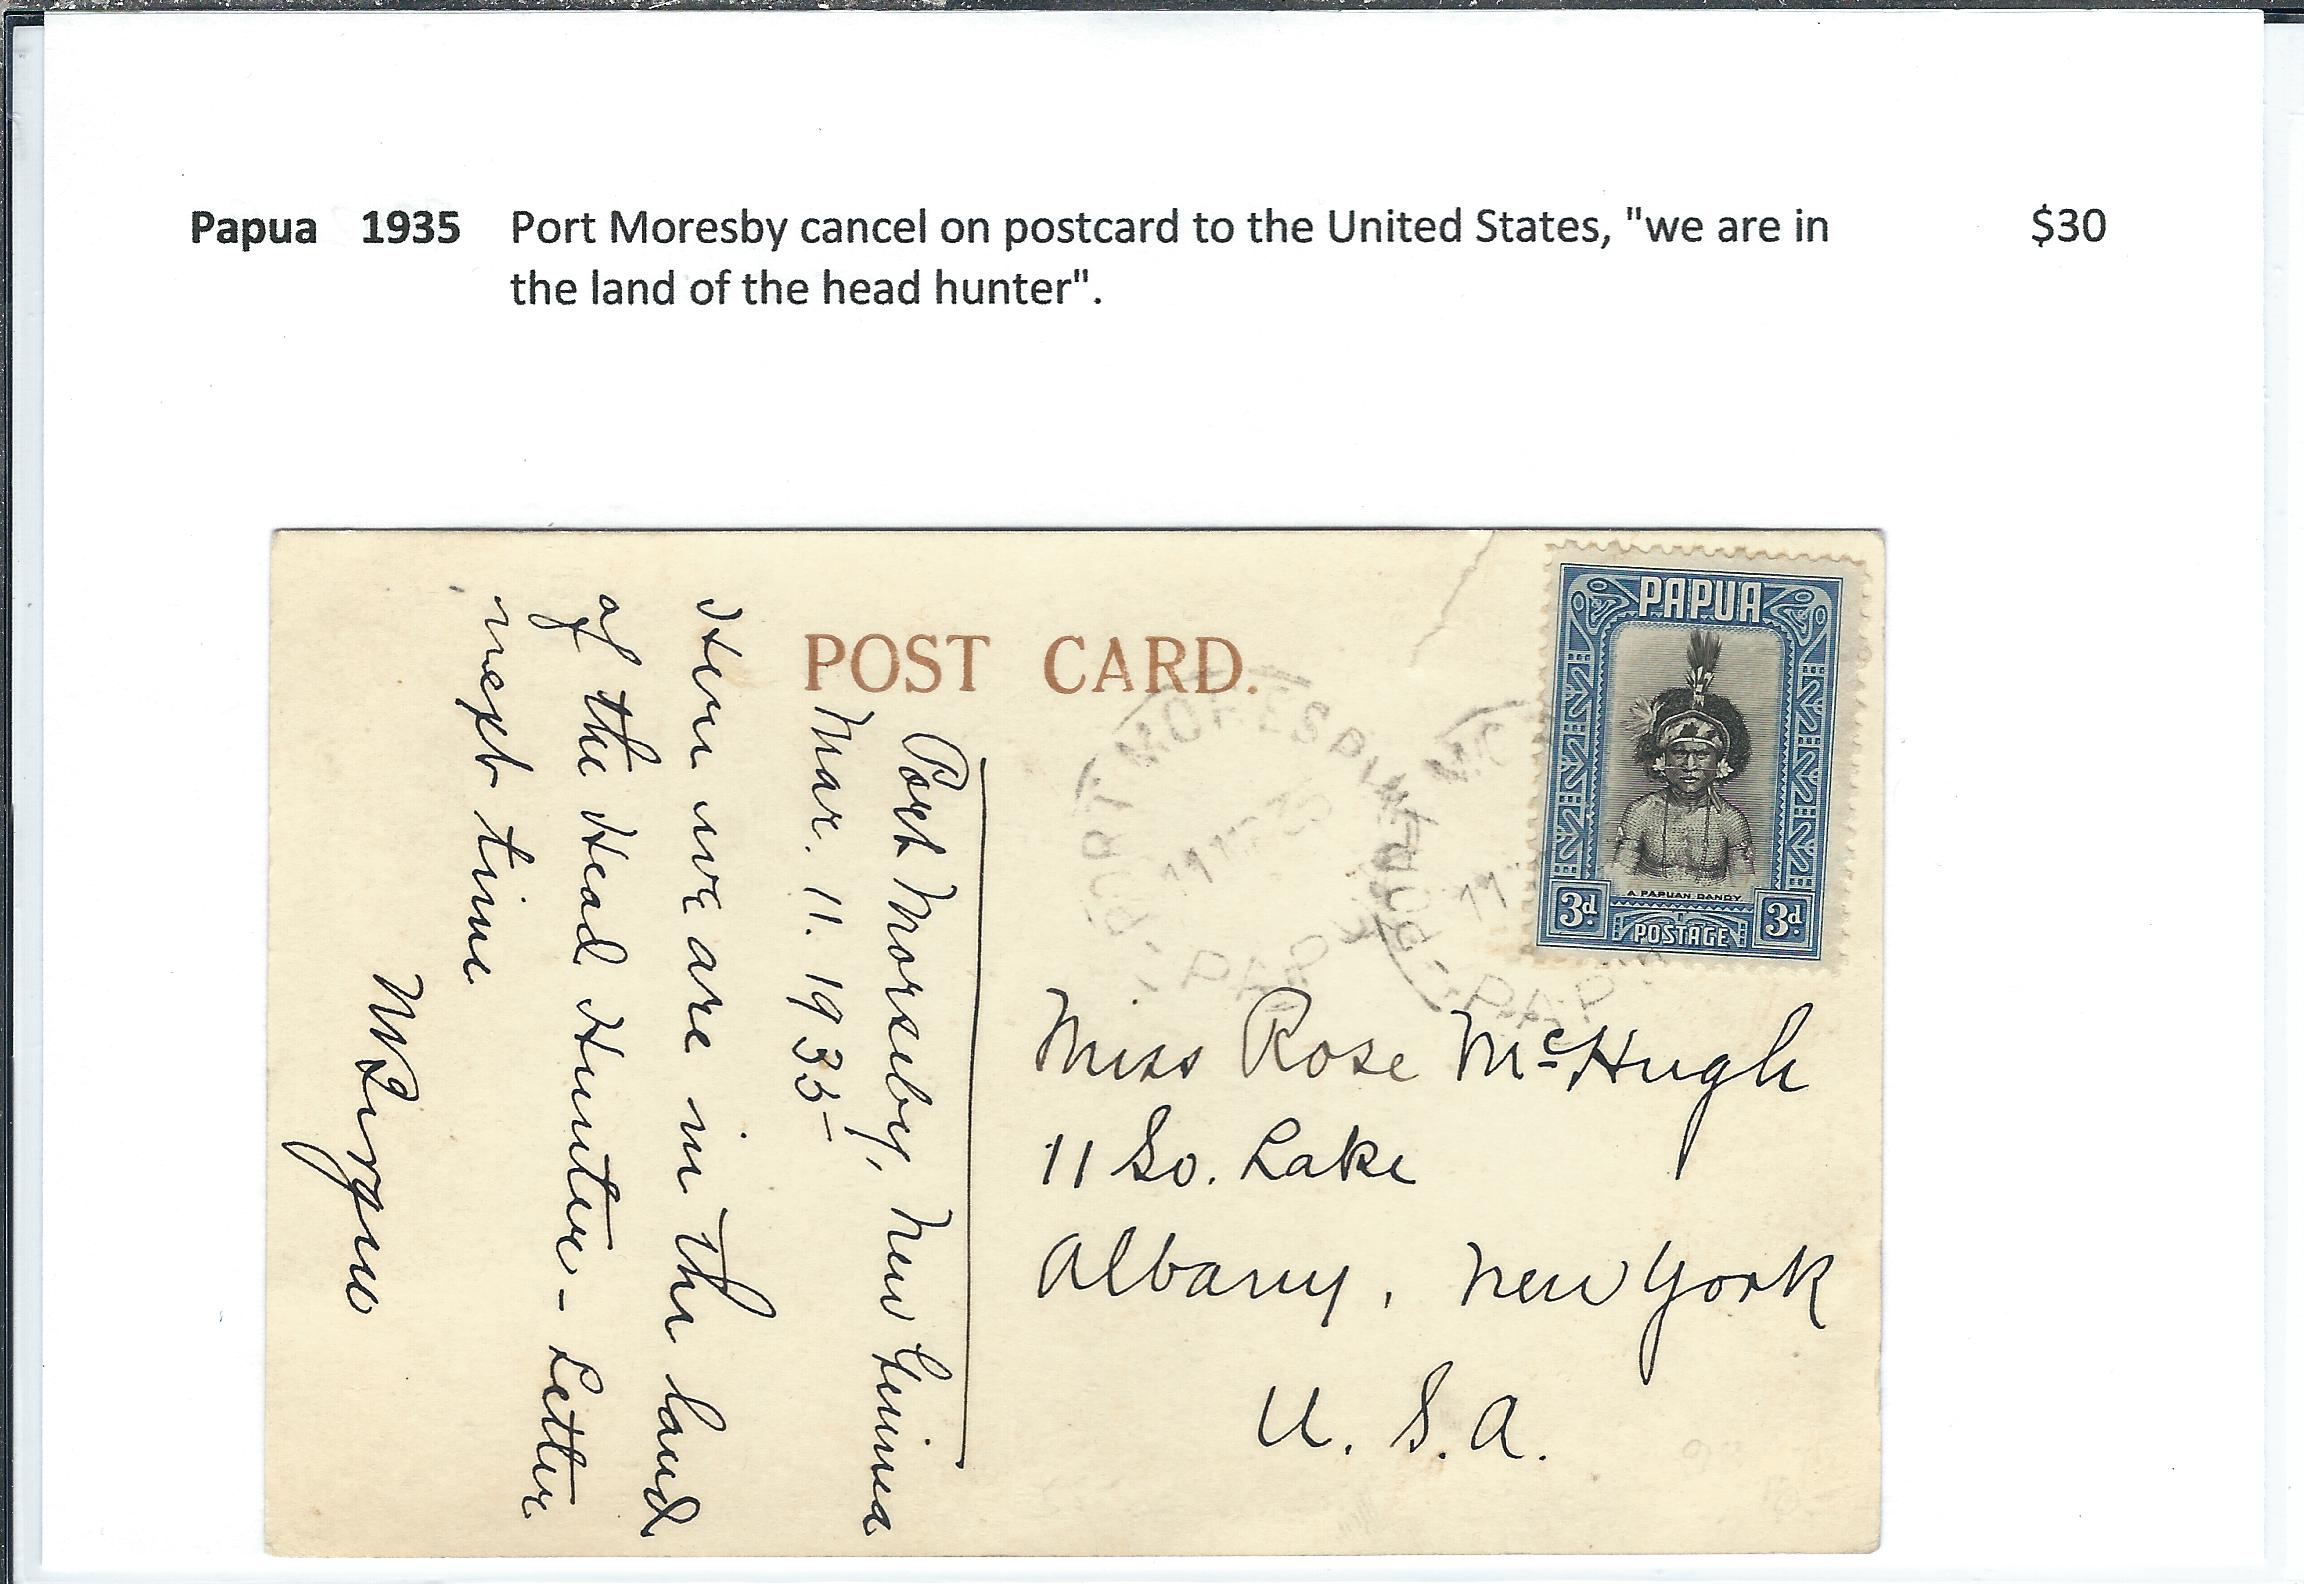 Papua 1935 Port Moresby cancel on postcard to the United States, "we are in $30
the land of the head hunter".
POST CARD.
PAPUA
A PAPUAN DANDY
3d POSTAGE 3d
PORT MORESBY
PAP
PORT MO
PAP
Port Moresby, New Guinea
Mar. 11. 1935
Here we are in the land
of the Head Hunter - Letter
next time
Miss Rose McHugh
11 So. Lake
Albany, New York
U. S. A.